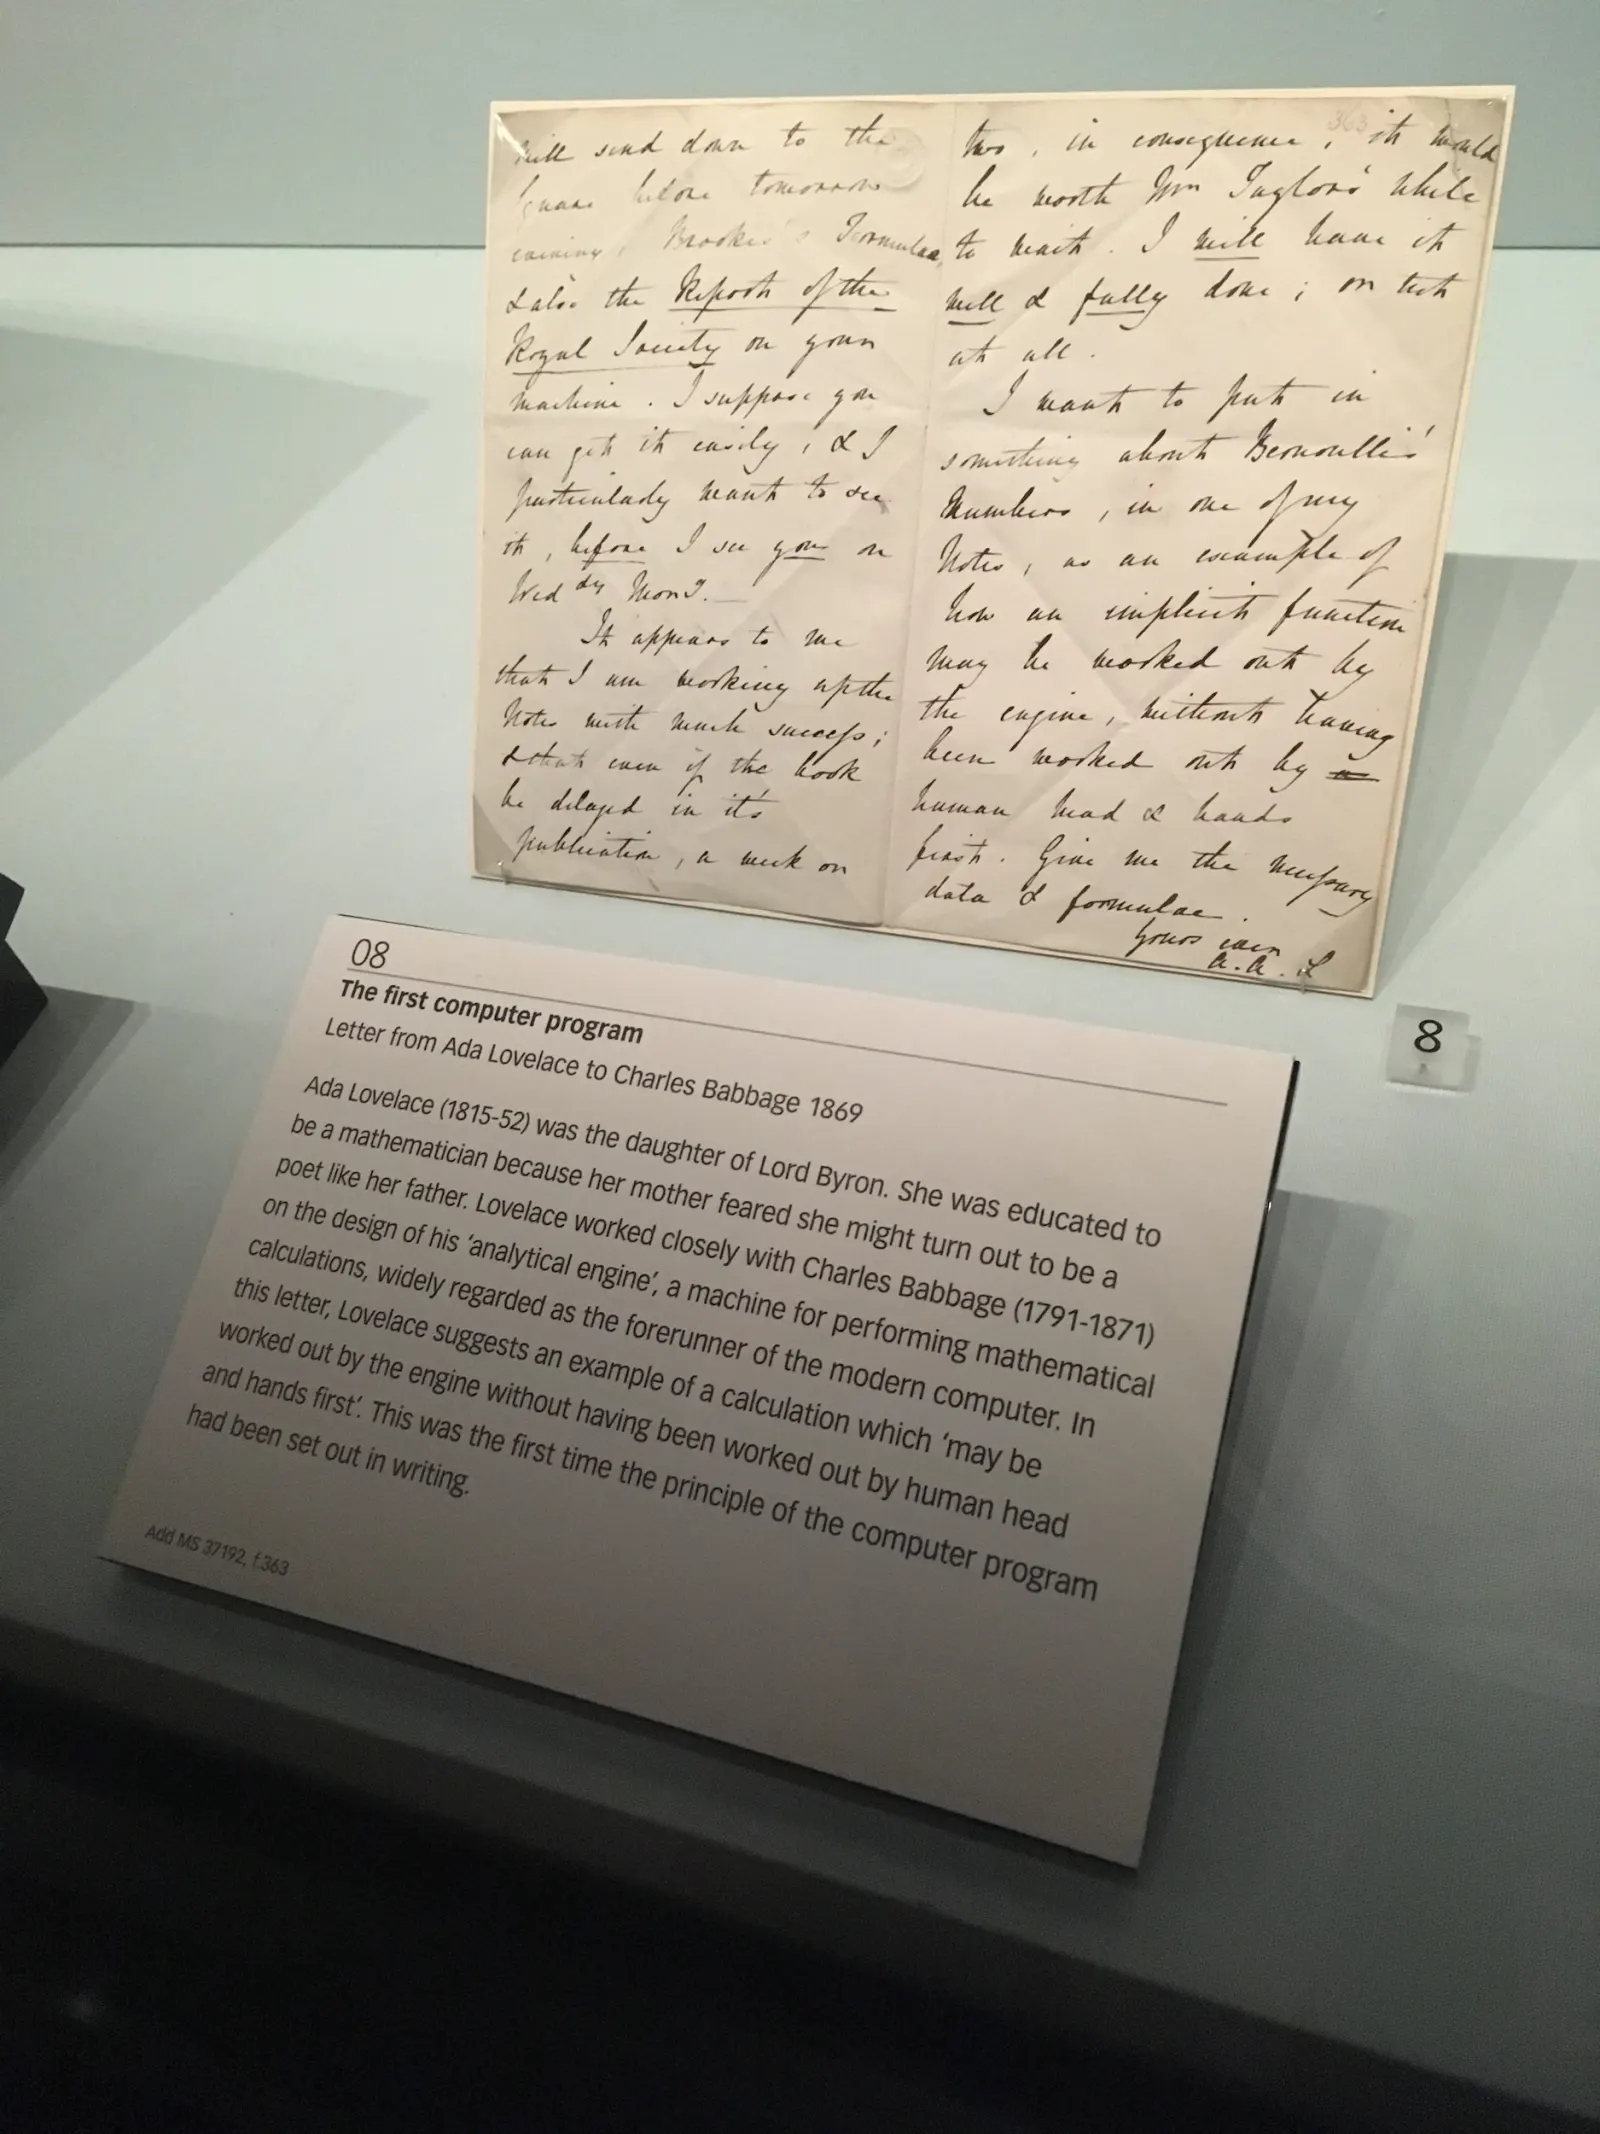 will send down to the
Square before tomorrow
evening, Brooke's Formulae,
& also the Report of the
Royal Society on your
machine. I suppose you
can get it easily, & I
particularly want to see
it, before I see you on
Wed dy Mon g.
It appears to me
that I am working up the
Notes with much success;
& that even if the book
be delayed in it's
publication, a week or
two, in consequence, it would
be worth Mr Taylor's while
to wait. I will have it
well & fully done; or not
at all.
I want to put in
something about Bernoulli's
Numbers, in one of my
Notes, as an example of
how an implicit function
may be worked out by
the engine, without having
been worked out by
human head & hands
first. Give me the necessary
data & formulae.
Yours ever
A.A.L
363
08
The first computer program
Letter from Ada Lovelace to Charles Babbage 1869
Ada Lovelace (1815-52) was the daughter of Lord Byron. She was educated to
be a mathematician because her mother feared she might turn out to be a
poet like her father. Lovelace worked closely with Charles Babbage (1791-1871)
on the design of his 'analytical engine', a machine for performing mathematical
calculations, widely regarded as the forerunner of the modern computer. In
this letter, Lovelace suggests an example of a calculation which 'may be
worked out by the engine without having been worked out by human head
and hands first'. This was the first time the principle of the computer program
had been set out in writing.
Add MS 37192, f.363
8